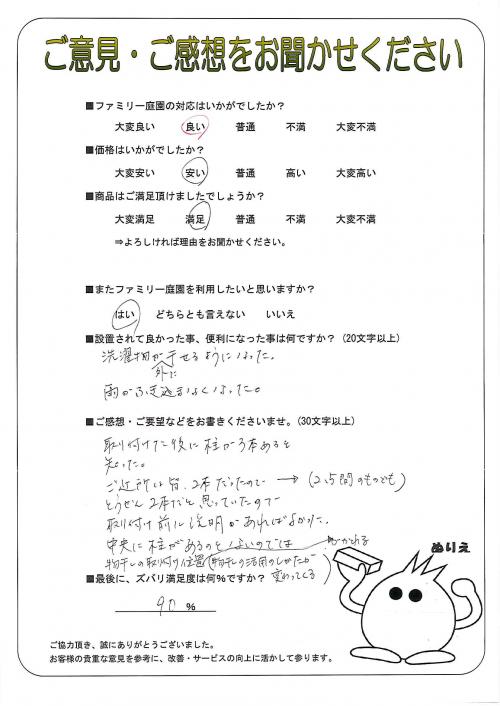 ご意見・ご感想をお聞かせください
■ファミリー庭園の対応はいかがでしたか？
大変良い　良い　普通　不満　大変不満
■価格はいかがでしたか？
大変安い　安い　普通　高い　大変高い
■商品はご満足頂けましたでしょうか？
大変満足　満足　普通　不満　大変不満
⇒よろしければ理由をお聞かせください。
■またファミリー庭園を利用したいと思いますか？
はい　どちらとも言えない　いいえ
■設置されて良かった事、便利になった事は何ですか？（20文字以上）
洗濯物が外に干せるようになった。
雨がふき込まなくなった。
■ご感想・ご要望などをお書きくださいませ。（30文字以上）
取り付けた後に柱が3本あると
知った。
ご近所は皆、2本だったので → (2、5間のものでも)
とうぜん2本だと思っていたので
取り付け前に説明があればよかった。
中央に柱があるのとないのでは
物干しの取付け位置(物干しの活用のしかたが
変わってくる)
■最後に、ズバリ満足度は何%ですか？
90 %
ぬりえ
ご協力頂き、誠にありがとうございました。
お客様の貴重な意見を参考に、改善・サービスの向上に活かして参ります。